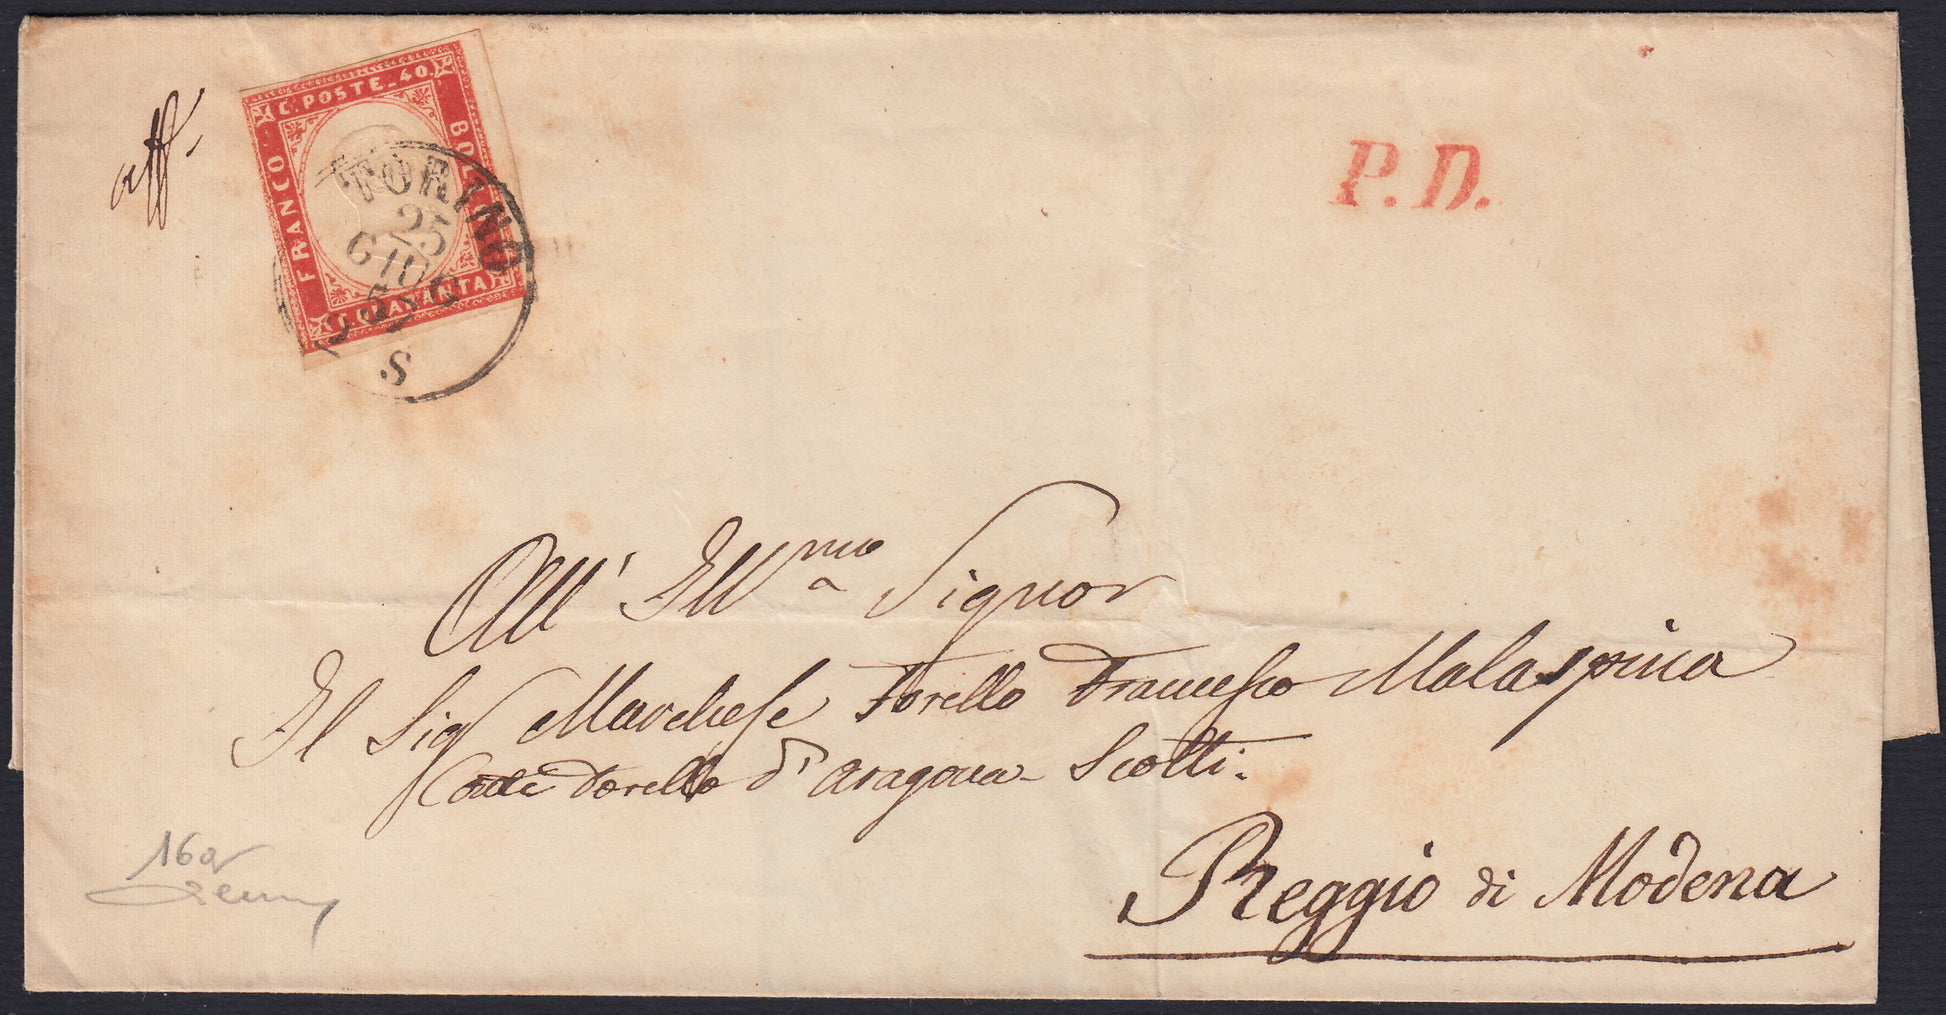 aff.
C. POSTE. 40.
FRANCO
BOLLO
C. QUARANTA
TORINO
25
GIUG
S
P. D.
All' Ill.mo Signor
Il Sig Marchese Torello Francesco Malaspina
Conte Torello d' Aragona - Scotti.
Reggio di Modena
16